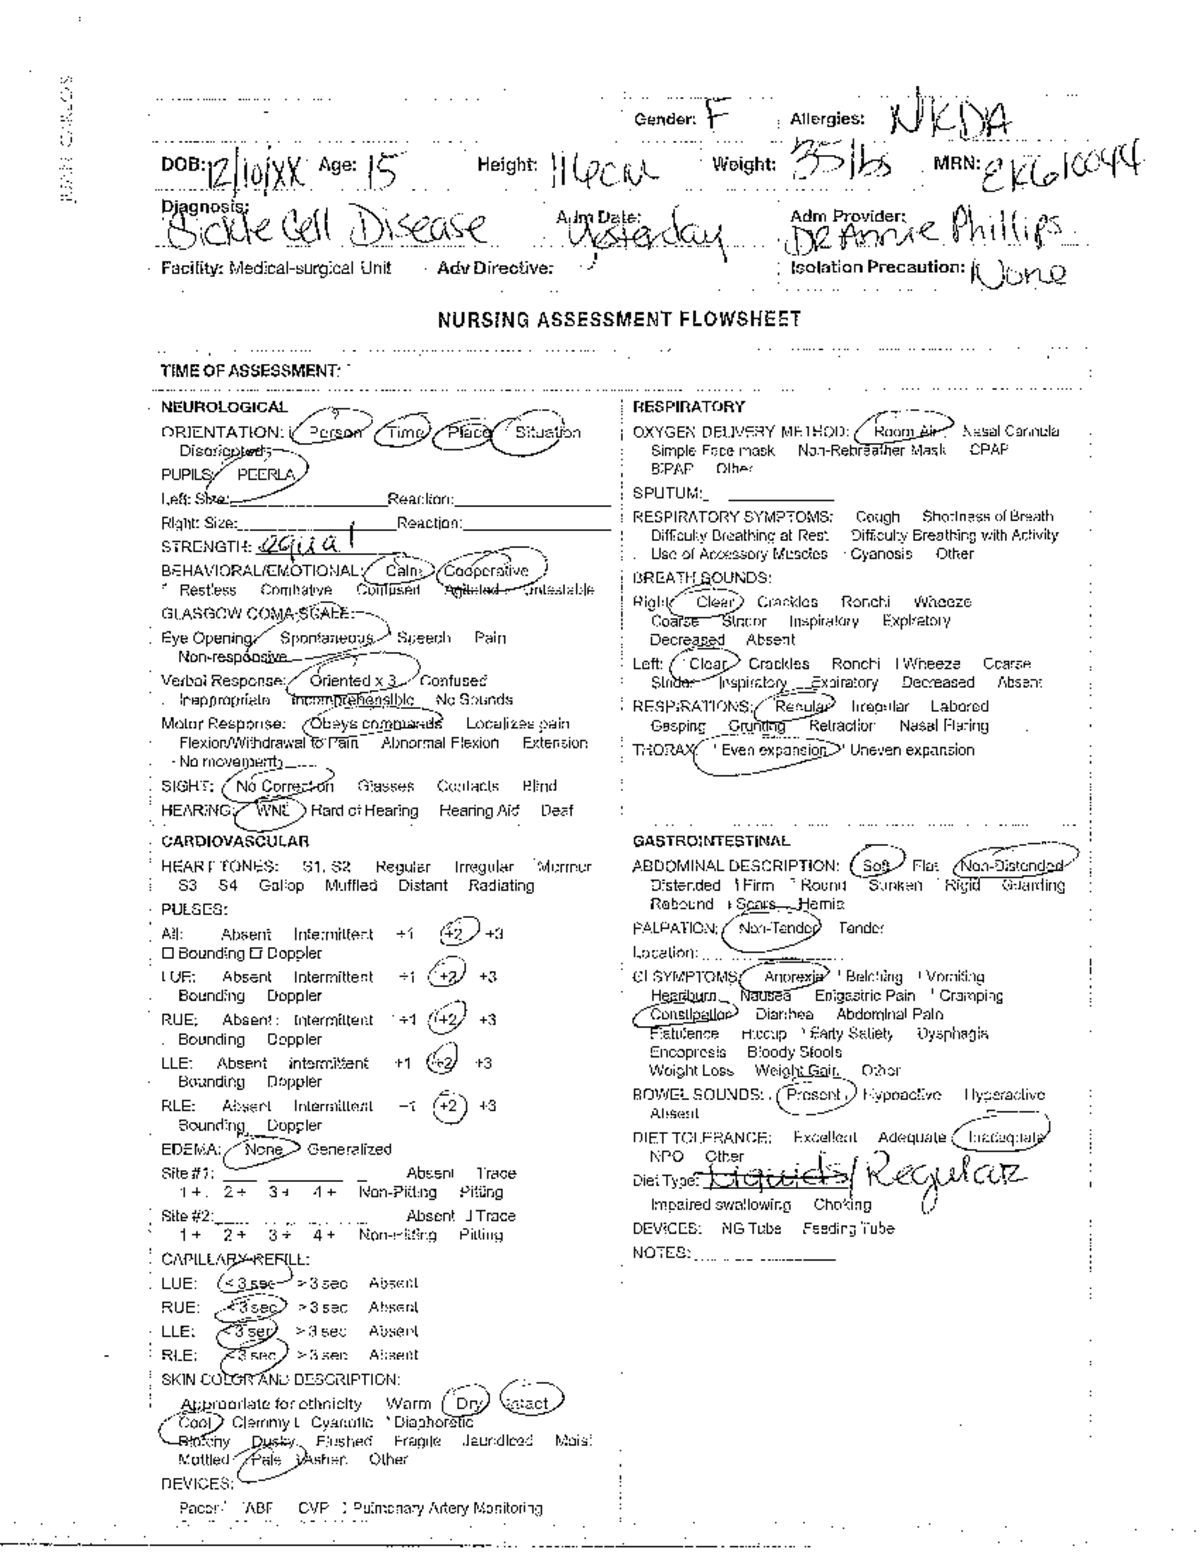 JUAN CARLOS
Gender: F Allergies: NKDA
DOB: 12/10/XX Age: 15 Height: 116cm Weight: 35lbs MRN: EK610044
Diagnosis: Sickle Cell Disease Adm Date: Yesterday Adm Provider: DR Annie Phillips
Facility: Medical-surgical Unit Adv Directive: Isolation Precaution: None
NURSING ASSESSMENT FLOWSHEET
TIME OF ASSESSMENT:
NEUROLOGICAL
ORIENTATION: Person Time Place Situation
Disoriented
PUPILS: PEERLA
Left: Size: Reaction:
Right: Size: Reaction:
STRENGTH: equal
BEHAVIORAL/EMOTIONAL: Calm Cooperative
Restless Combative Confused Agitated Untestable
GLASGOW COMA SCALE:
Eye Opening: Spontaneous Speech Pain
Non-responsive
Verbal Response: Oriented x 3 Confused
Inappropriate Incomprehensible No Sounds
Motor Response: Obeys commands Localizes pain
Flexion/Withdrawal to Pain Abnormal Flexion Extension
No movement
SIGHT: No Correction Glasses Contacts Blind
HEARING: WNL Hard of Hearing Hearing Aid Deaf
RESPIRATORY
OXYGEN DELIVERY METHOD: Room Air Nasal Cannula
Simple Face mask Non-Rebreather Mask CPAP
BIPAP Other
SPUTUM:
RESPIRATORY SYMPTOMS: Cough Shortness of Breath
Difficulty Breathing at Rest Difficulty Breathing with Activity
Use of Accessory Muscles Cyanosis Other
BREATH SOUNDS:
Right: Clear Crackles Ronchi Wheeze
Coarse Stridor Inspiratory Expiratory
Decreased Absent
Left: Clear Crackles Ronchi Wheeze Coarse
Stridor Inspiratory Expiratory Decreased Absent
RESPIRATIONS: Regular Irregular Labored
Gasping Grunting Retraction Nasal Flaring
THORAX: Even expansion Uneven expansion
CARDIOVASCULAR
HEART TONES: S1, S2 Regular Irregular Murmur
S3 S4 Gallop Muffled Distant Radiating
PULSES:
All: Absent Intermittent +1 +2 +3
☐ Bounding ☐ Doppler
LUE: Absent Intermittent +1 +2 +3
Bounding Doppler
RUE: Absent Intermittent +1 +2 +3
Bounding Doppler
LLE: Absent Intermittent +1 +2 +3
Bounding Doppler
RLE: Absent Intermittent +1 +2 +3
Bounding Doppler
EDEMA: None Generalized
Site #1: Absent Trace
1+ 2+ 3+ 4+ Non-Pitting Pitting
Site #2: Absent Trace
1+ 2+ 3+ 4+ Non-Pitting Pitting
CAPILLARY REFILL:
LUE: <3 sec >3 sec Absent
RUE: <3 sec >3 sec Absent
LLE: <3 sec >3 sec Absent
RLE: <3 sec >3 sec Absent
SKIN COLOR AND DESCRIPTION:
Appropriate for ethnicity Warm Dry Intact
Cool Clammy Cyanotic Diaphoretic
Blotchy Dusky Flushed Fragile Jaundiced Moist
Mottled Pale Ashen Other
DEVICES:
CVP Pulmonary Artery Monitoring
GASTROINTESTINAL
ABDOMINAL DESCRIPTION: Soft Flat Non-Distended
Distended Firm Round Sunken Rigid Guarding
Rebound Scars Hernia
PALPATION: Non-Tender Tender
Location:
GI SYMPTOMS: Anorexia Belching Vomiting
Heartburn Nausea Epigastric Pain Cramping
Constipation Diarrhea Abdominal Pain
Flatulence Hiccup Early Satiety Dysphagia
Encopresis Bloody Stools
Weight Loss Weight Gain Other
BOWEL SOUNDS: Present Hypoactive Hyperactive
Absent
DIET TOLERANCE: Excellent Adequate Inadequate
NPO Other
Diet Type: Liquids/Regular
Impaired swallowing Choking
DEVICES: NG Tube Feeding Tube
NOTES: